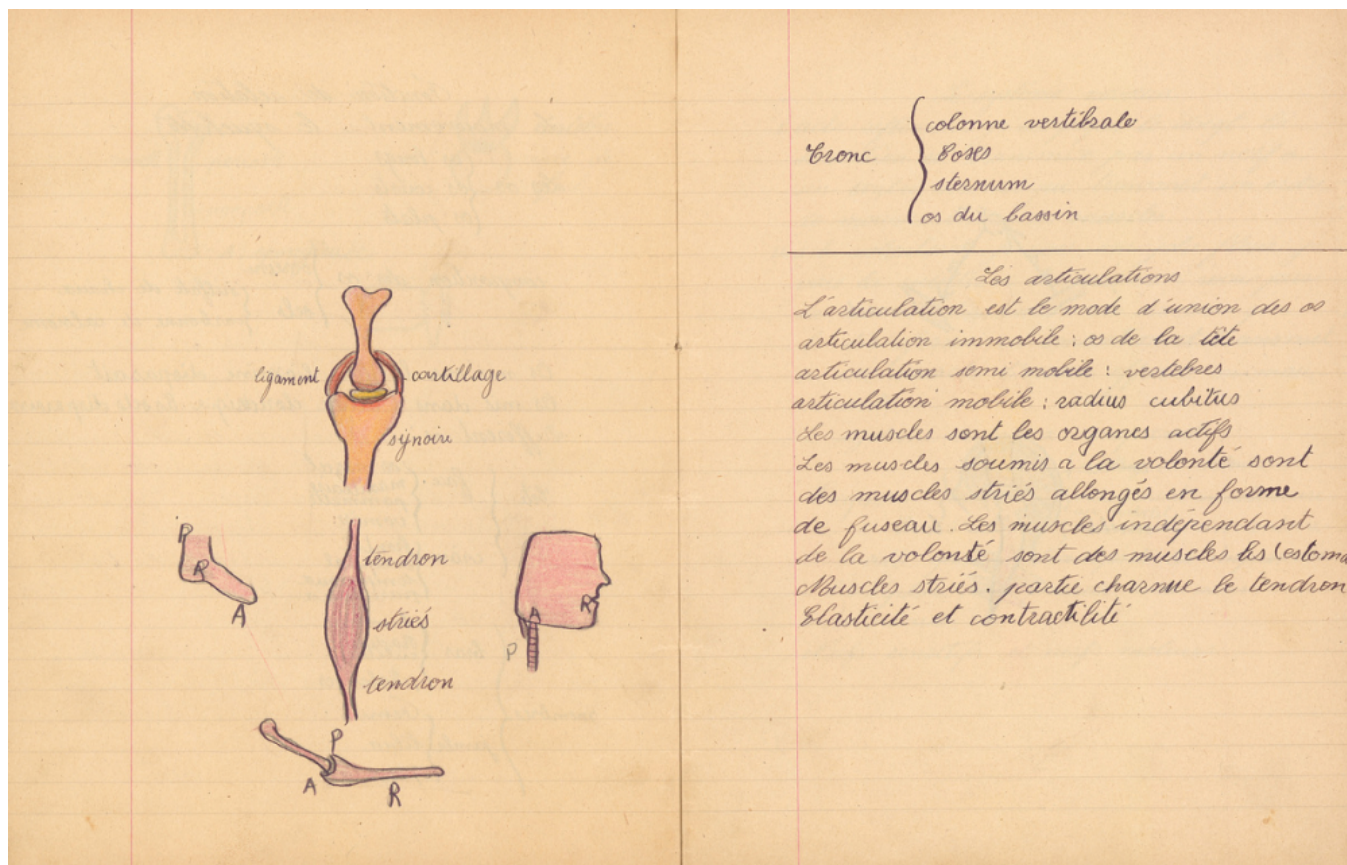 ligament cartillage
synoire
P
R
A
tendron
striés
tendron
A R
P
P
A R
Tronc
colonne vertébrale
Coses
sternum
os du bassin
Les articulations
L'articulation est le mode d'union des os
articulation immobile : os de la tête
articulation semi mobile : vertebres
articulation mobile : radius cubitus
Les muscles sont les organes actifs
Les muscles soumis a la volonté sont
des muscles striés allongés en forme
de fuseau. Les muscles indépendant
de la volonté sont des muscles lis (estoma
Muscles striés. partie charnue le tendron
Elasticité et contractilité